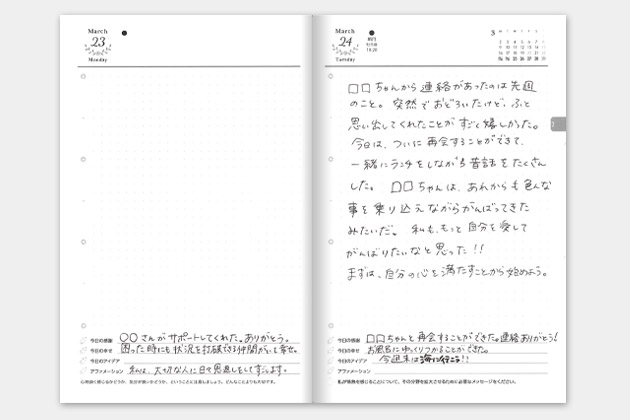 March
23
Monday
今日の感謝 ○○さんがサポートしてくれた。ありがとう。
今日の幸せ 困った時にも状況を打破できる仲間がいて幸せ。
今日のアイデア
アファメーション 私は、大切な人に日々恩返しをして生きます。
March
24
Tuesday
3
□□ちゃんから連絡があったのは先週
のこと。突然でおどろいたけど、ふと
思い出してくれたことがすごく嬉しかった。
今日は、ついに再会することができて、
一緒にランチをしながら昔話をたくさん
した。□□ちゃんは、あれからも色んな
事を乗り込えながらがんばってきた
みたいだ。私も、もっと自分を愛して
がんばりたいなと思った!!
まずは、自分の心を満たすことから始めよう。
今日の感謝 □□ちゃんと再会することができた。連絡ありがとう!
今日の幸せ お風呂にゆっくりつかることができた。
今日のアイデア 今週末は海に行こう!!
アファメーション